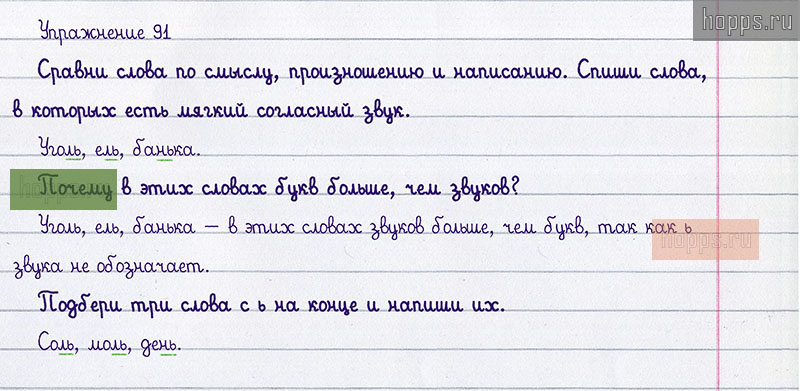 hopps.ru
Упражнение 91
Сравни слова по смыслу, произношению и написанию. Спиши слова,
в которых есть мягкий согласный звук.
Уголь, ель, банька.
Почему в этих словах букв больше, чем звуков?
Уголь, ель, банька – в этих словах звуков больше, чем букв, так как ь
hopps.ru
звука не обозначает.
Подбери три слова с ь на конце и напиши их.
Соль, моль, день.